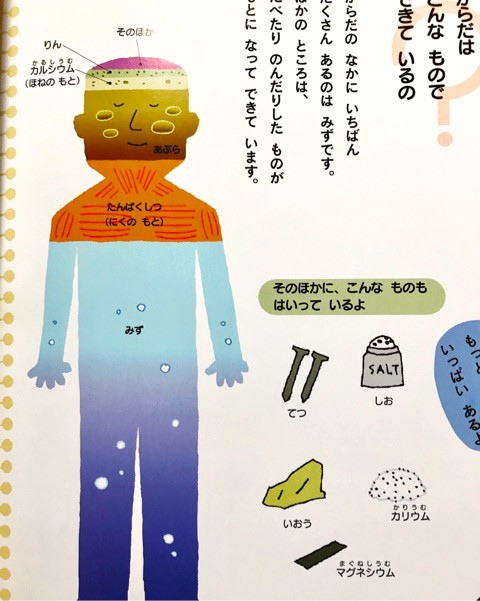 からだは
どんな もので
できて いるの
からだの なかに いちばん
たくさん あるのは みずです。
ほかの ところは、
たべたり のんだりした ものが
もとに なって できて います。
そのほか
りん
かるしうむ
カルシウム
(ほねの もと)
あぶら
たんぱくしつ
(にくの もと)
みず
そのほかに、こんな ものも
はいって いるよ
てつ
SALT
しお
いおう
かりうむ
カリウム
まぐねしうむ
マグネシウム
もっと
いっぱい あるよ